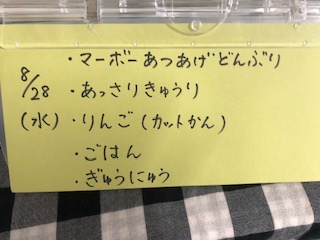 ・マーボーあつあげどんぶり
8/28 ・あっさりきゅうり
(水) ・りんご(カットかん)
・ごはん
・ぎゅうにゅう